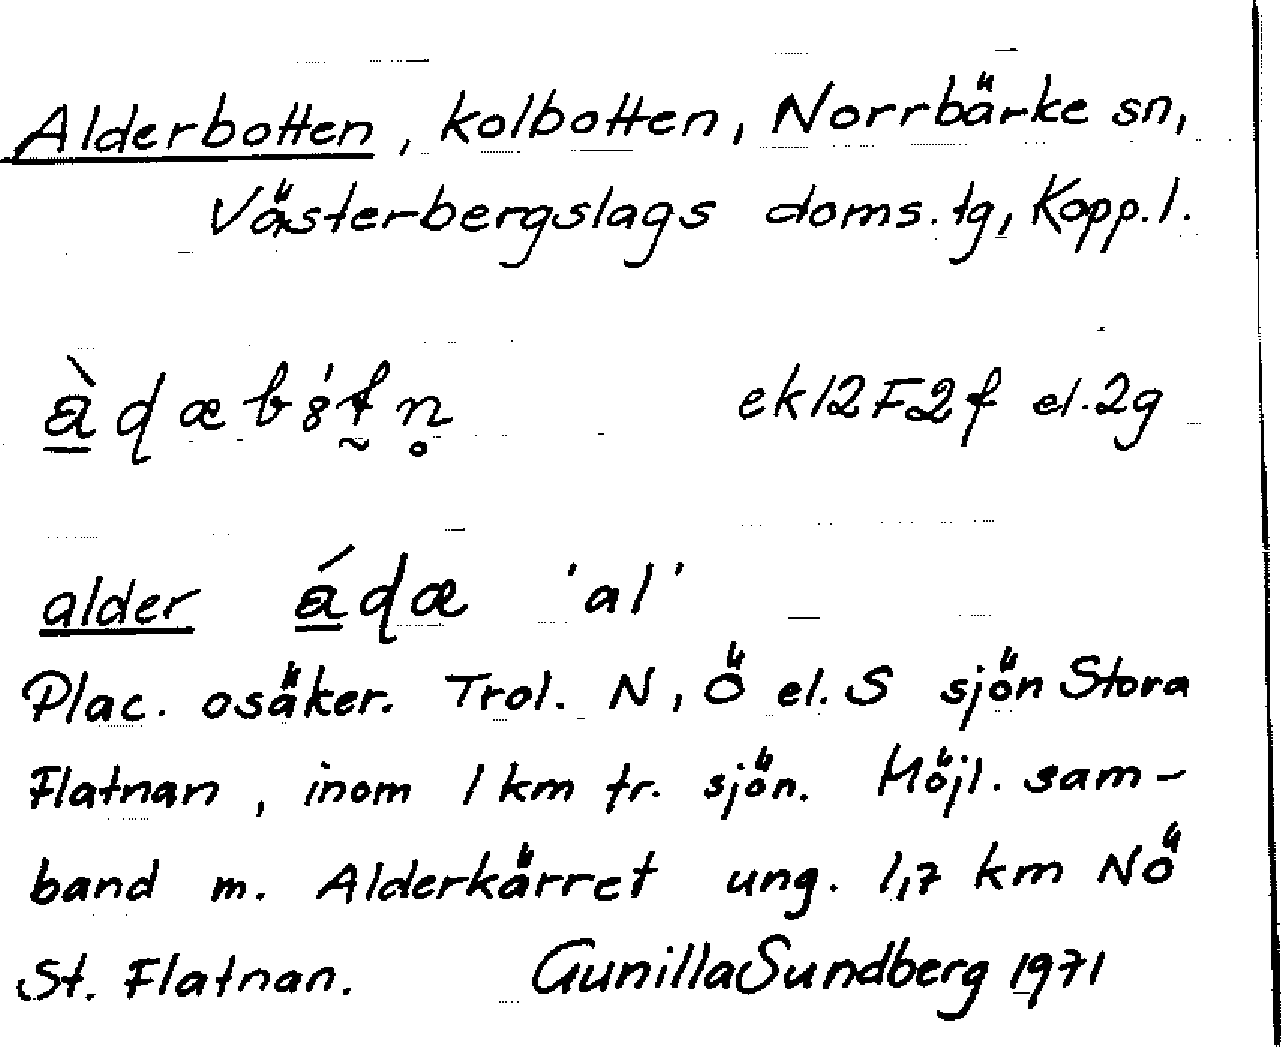 Alderbotten, kolbotten, Norrbärke sn,
Västerbergslags doms. tg, Kopp. l.
ek12F2f el. 2g
alder 'al'
Plac. osäker. Trol. N, Ö el. S sjön Stora
Flatnan, inom 1 km fr. sjön. Möjl. sam-
band m. Alderkärret ung. 1,7 km NÖ
St. Flatnan. Gunilla Sundberg 1971